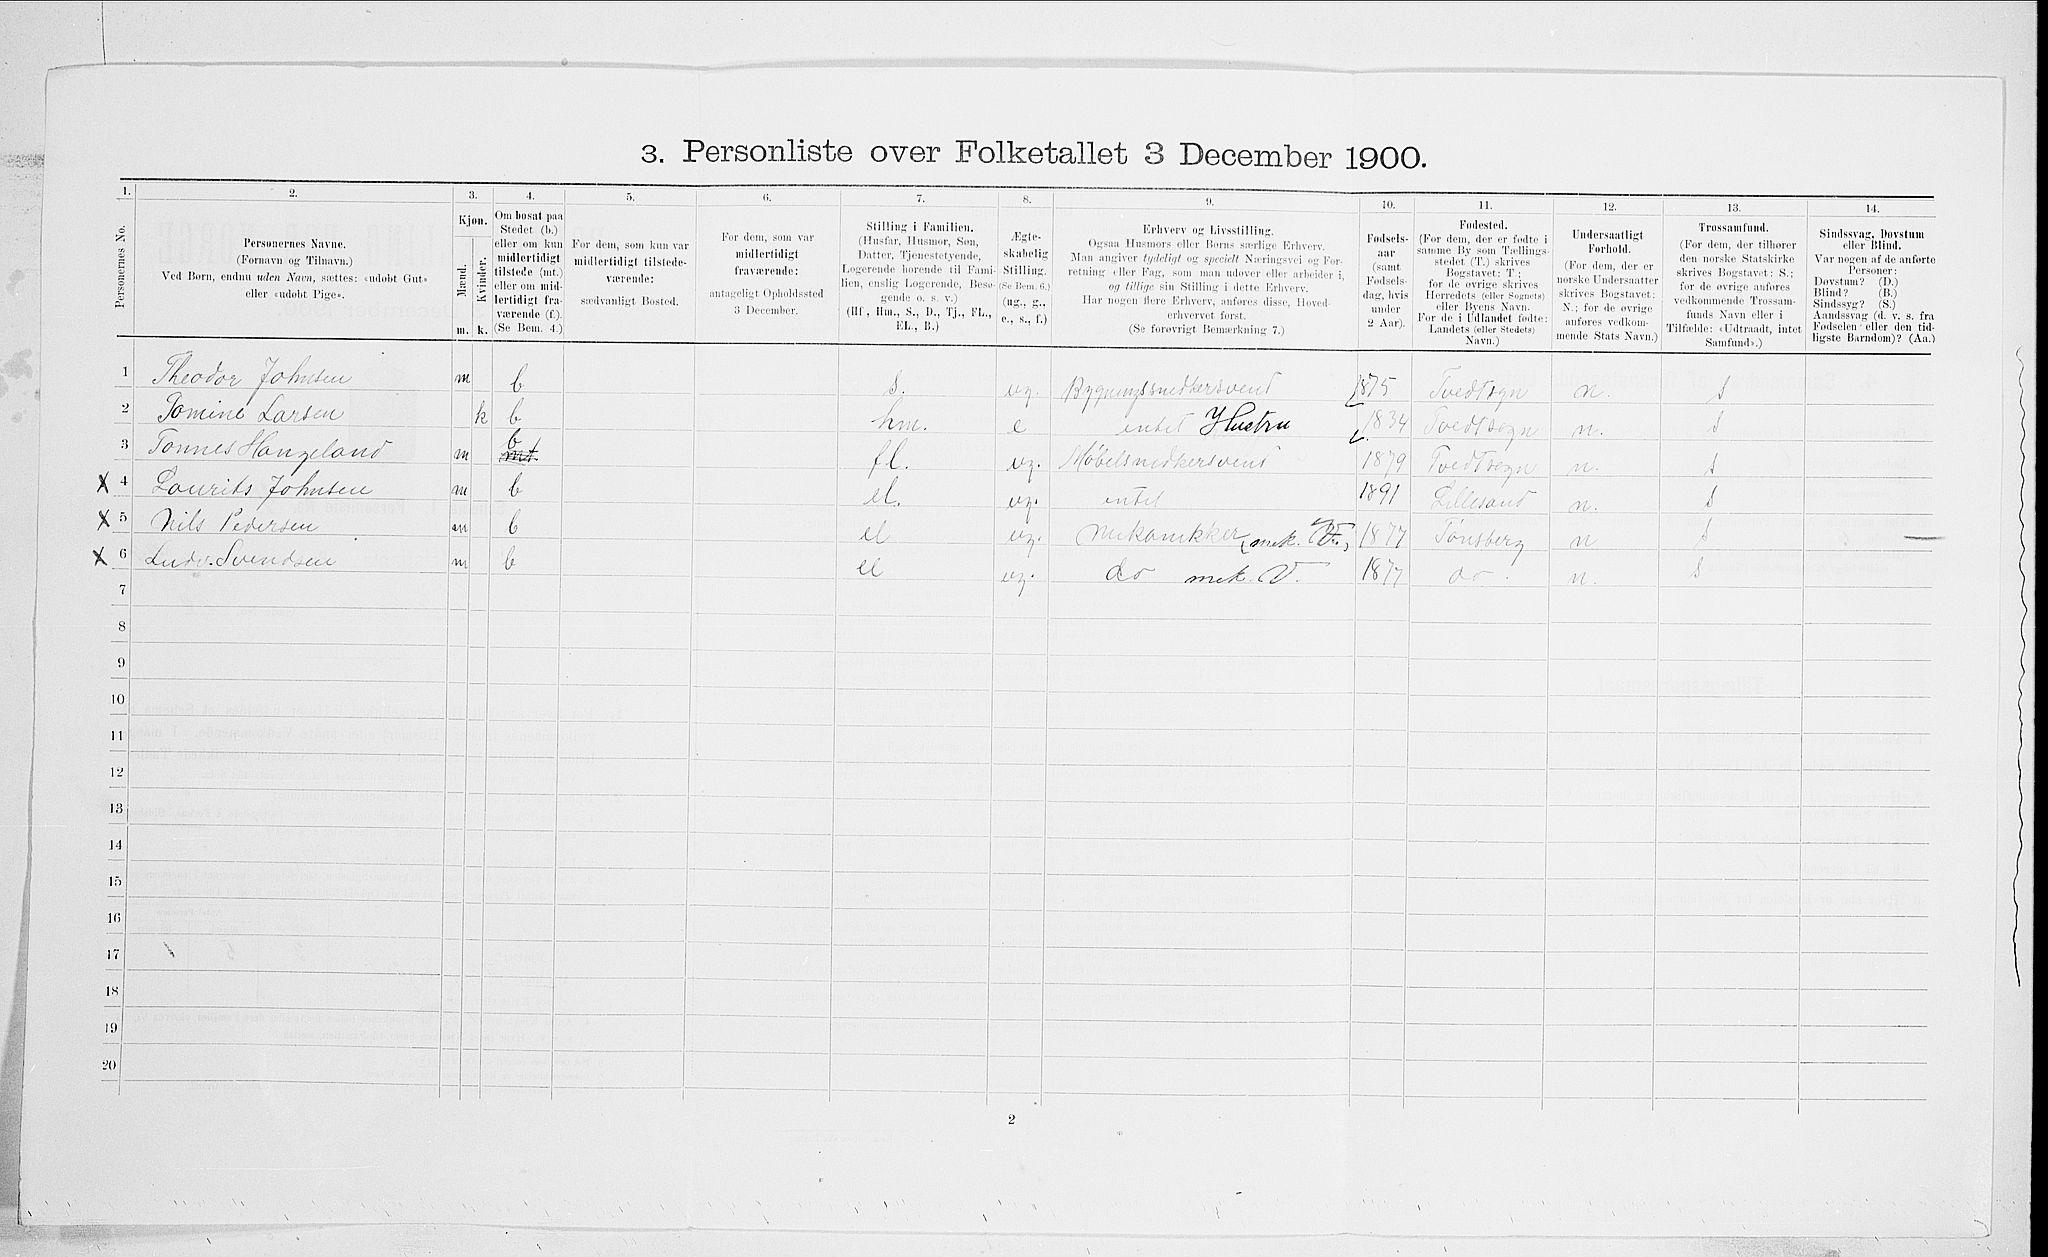 3. Personliste over Folketallet 3 December 1900.
1. 2. 3. 4. 5. 6. 7. 8. 9. 10. 11. 12. 13. 14.
Personernes No.
Personernes Navne.
(Fornavn og Tilnavn.)
Ved Børn, endnu uden Navn, sættes: «udøbt Gut»
eller «udøbt Pige».
Kjøn.
Mænd.
Kvinder.
m. k.
Om bosat paa
Stedet (b.)
eller om kun
midlertidigt
tilstede (mt.)
eller om mid-
lertidigt fra-
værende (f.)
(Se Bem. 4.)
For dem, som kun var
midlertidigt tilstede-
værende:
sædvanligt Bosted.
For dem, som var
midlertidigt
fraværende:
antageligt Opholdssted
3 December.
Stilling i Familien.
(Husfar, Husmor, Søn,
Datter, Tjenestetyende,
Logerende hørende til Fami-
lien, enslig Logerende, Besø-
gende o. s. v.)
(Hf., Hm., S., D., Tj., FL.,
EL., B.)
Ægte-
skabelig
Stilling.
(Se Bem. 6.)
(ug., g.,
e., s., f.)
Erhverv og Livsstilling.
Ogsaa Husmors eller Børns særlige Erhverv.
Man angiver tydeligt og specielt Næringsvei og For-
retning eller Fag, som man udøver eller arbeider i,
og tillige sin Stilling i dette Erhverv.
Har nogen flere Erhverv, anføres disse, Hoved-
erhvervet først.
(Se forøvrigt Bemærkning 7.)
Fødsels-
aar
(samt
Fødsels-
dag, hvis
under
2 Aar).
Fødested.
(For dem, der er fødte i
samme By som Tællings-
stedet (T.) skrives
Bogstavet: T.;
for de øvrige skrives
Herredets (eller Sognets)
eller Byens Navn.
For de i Udlandet fødte:
Landets (eller Stedets)
Navn.)
Undersaatligt
Forhold.
(For dem, der er
norske Undersaatter
skrives Bogstavet:
N.; for de øvrige
anføres vedkom-
mende Stats Navn.)
Trossamfund.
(For dem, der tilhører
den norske Statskirke
skrives Bogstavet: S.;
for de øvrige anføres
vedkommende Trossam-
funds Navn eller i
Tilfælde: «Udtraadt, intet
Samfund».)
Sindssvag, Døvstum
eller Blind.
Var nogen af de anførte
Personer:
Døvstum? (D.)
Blind? (B.)
Sindssyg? (S.)
Aandssvag (d. v. s. fra
Fødselen eller den tid-
ligste Barndom)? (Aa.)
1 Theodor Johnsen m b s. ug. Bygningssnedkersvend 1875 Tvedtsogn n. s
2 Tomine Larsen k b hm. e intet Hustru 1834 Tvedtsogn n. s
3 Tønnes Hangeland m b mt. fl. ug. Møbelsnedkersvend 1879 Tvedtsogn n. s
X 4 Laurits Johnsen m b el. ug. intet 1891 Lillesand n. s
X 5 Nils Pedersen m b el ug. Mekanikker (mek. V.) 1877 Tønsberg n s
X 6 Ludv. Svendsen m b el ug. do mek. V. 1877 do. n. s
7
8
9
10
11
12
13
14
15
16
17
18
19
20
2